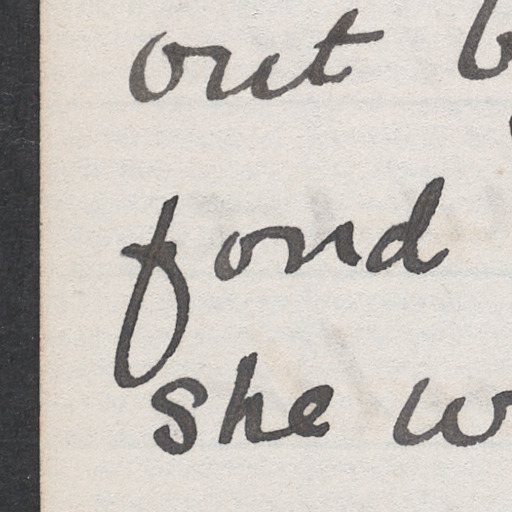 out
fond
she